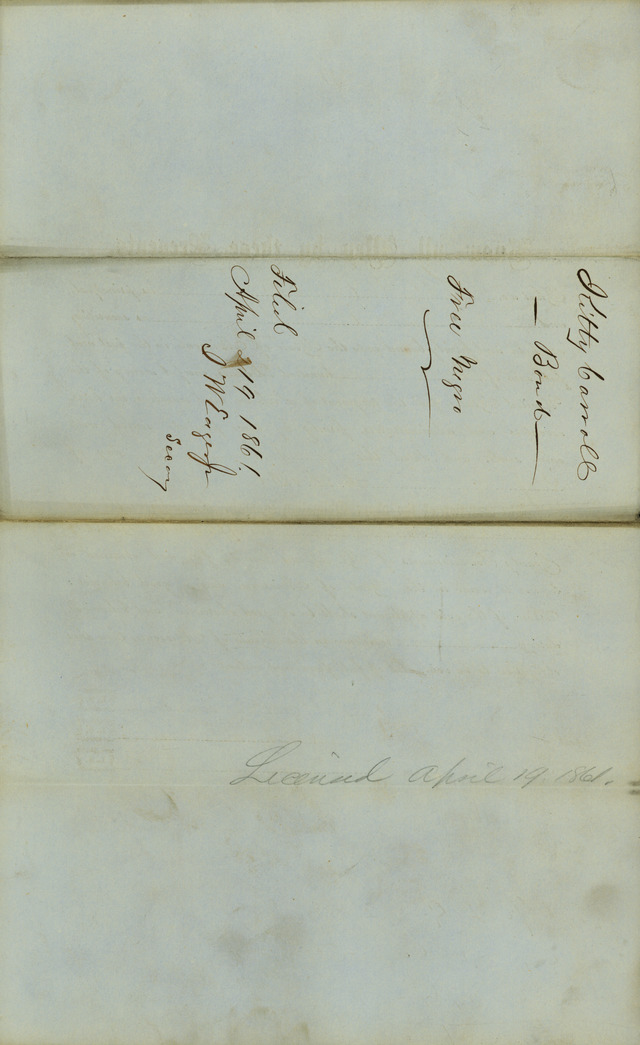 Kitty Carroll
— Bond —
Free Negro
Filed
April 19 1861,
J W Eager Jr
Secry
Licensed April 19. 1861.